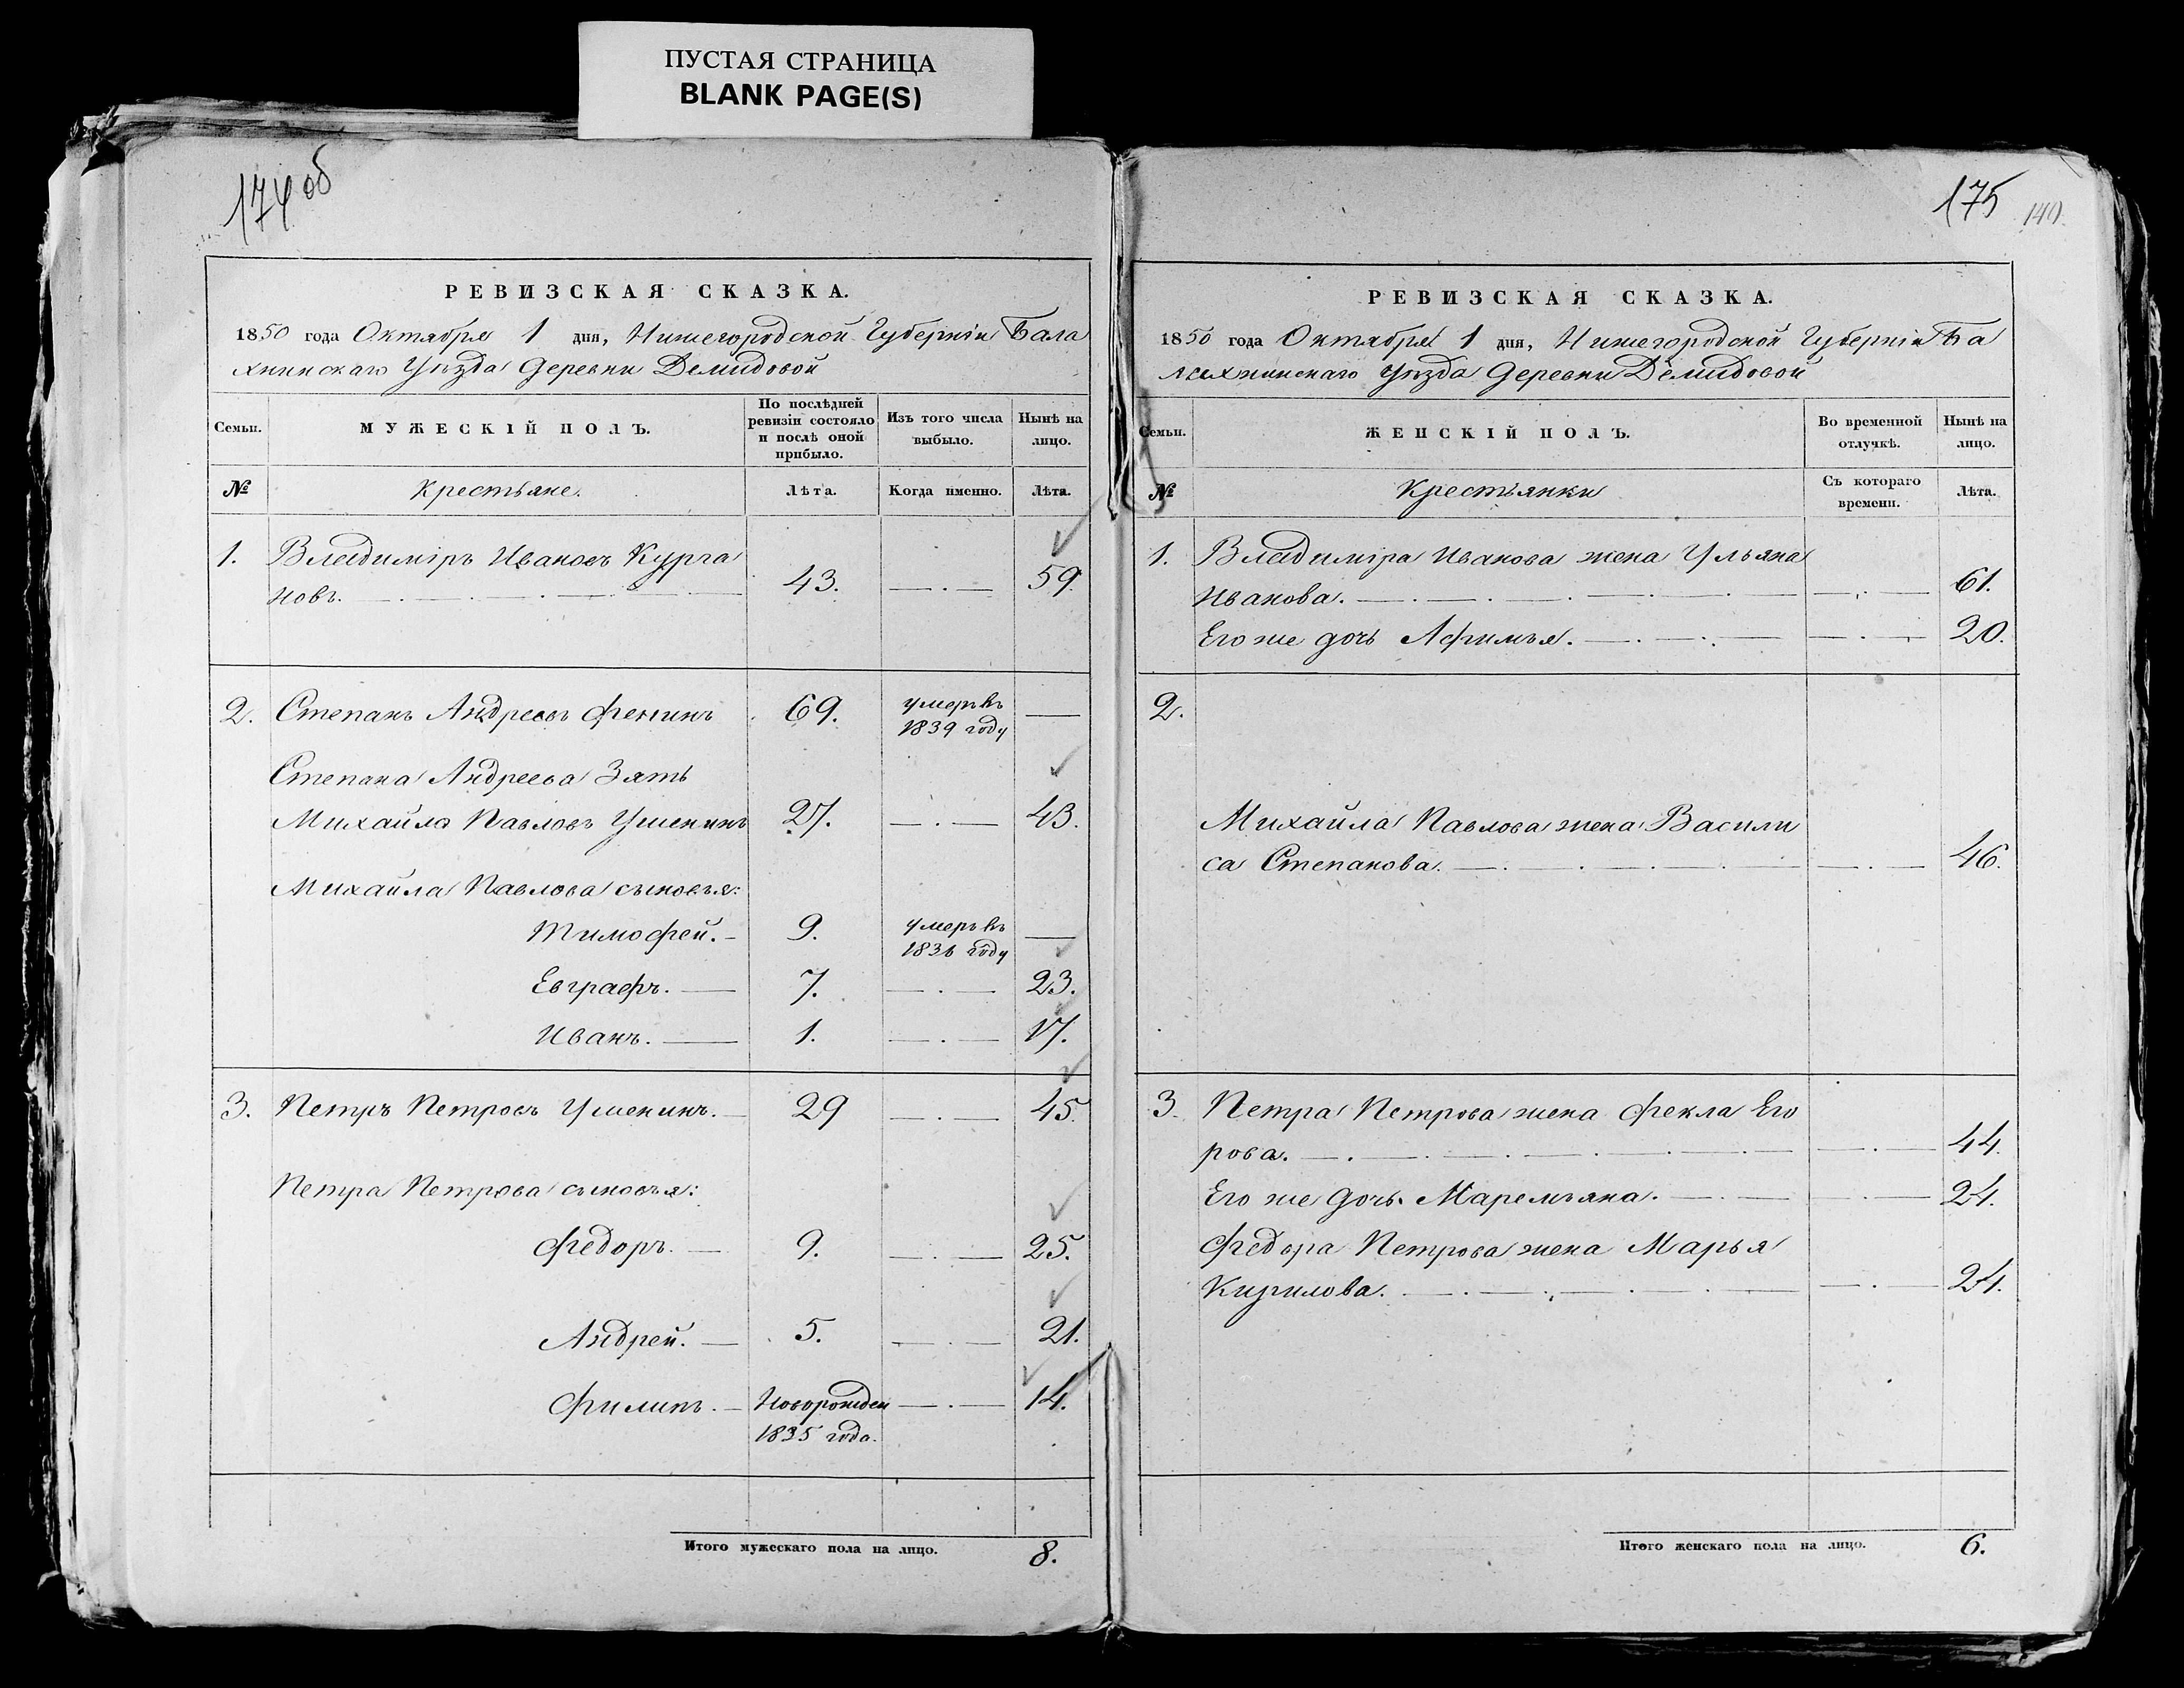 ПУСТАЯ СТРАНИЦА
BLANK PAGE(S)
174 об
РЕВИЗСКАЯ СКАЗКА.
1850 года Октября 1 дня, Нижегородской Губерніи Бала
хнинскаго Уѣзда Деревни Демидовой
Семьи. МУЖЕСКІЙ ПОЛЪ. По послѣдней ревизіи состояло и послѣ оной прибыло. Изъ того числа выбыло. Нынѣ на лицо.
№ Крестьяне. Лѣта. Когда именно. Лѣта.
1. Владиміръ Ивановъ Курга
новъ. 43. 59.
2. Степанъ Андреевъ Фенинъ 69. умеръ въ 1839 году
Степана Андреева Зять
Михайла Павловъ Ушенинъ 27. 43.
Михайла Павлова сыновья:
Тимофей. 9. умеръ въ 1836 году
Евграфъ. 7. 23.
Иванъ. 1. 17.
3. Петръ Петровъ Ушенинъ. 29 45.
Петра Петрова сыновья:
Федоръ. 9. 25.
Андрей. 5. 21.
Филипъ. Новорожден 14.
1835 года.
Итого мужескаго пола на лицо. 8.
175 140.
РЕВИЗСКАЯ СКАЗКА.
1850 года Октября 1 дня, Нижегородской Губерніи Ба
лахнинскаго Уѣзда Деревни Демидовой
Семьи. ЖЕНСКІЙ ПОЛЪ. Во временной отлучкѣ. Нынѣ на лицо.
№ Крестьянки Съ котораго времени. Лѣта.
1. Владиміра Иванова жена Ульяна
Иванова. 61.
Его же дочь Афимья. 20.
2.
Михайла Павлова жена Васили
са Степанова. 46.
3. Петра Петрова жена Фекла Его
рова. 44.
Его же дочь Маремьяна. 24.
Федора Петрова жена Марья
Кирилова. 24.
Итого женскаго пола на лицо. 6.